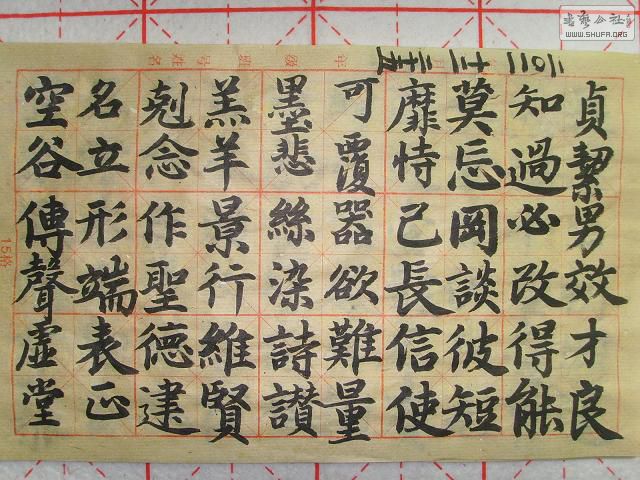 貞絜男效才良
知過必改得能
莫忘罔談彼短
靡恃己長信使
可覆器欲難量
墨悲絲染詩讃
羔羊景行維賢
剋念作聖德建
名立形端表正
空谷傳聲虛堂
年 级 班 号 姓名
15格
书艺公社
WWW.SHUFA.ORG